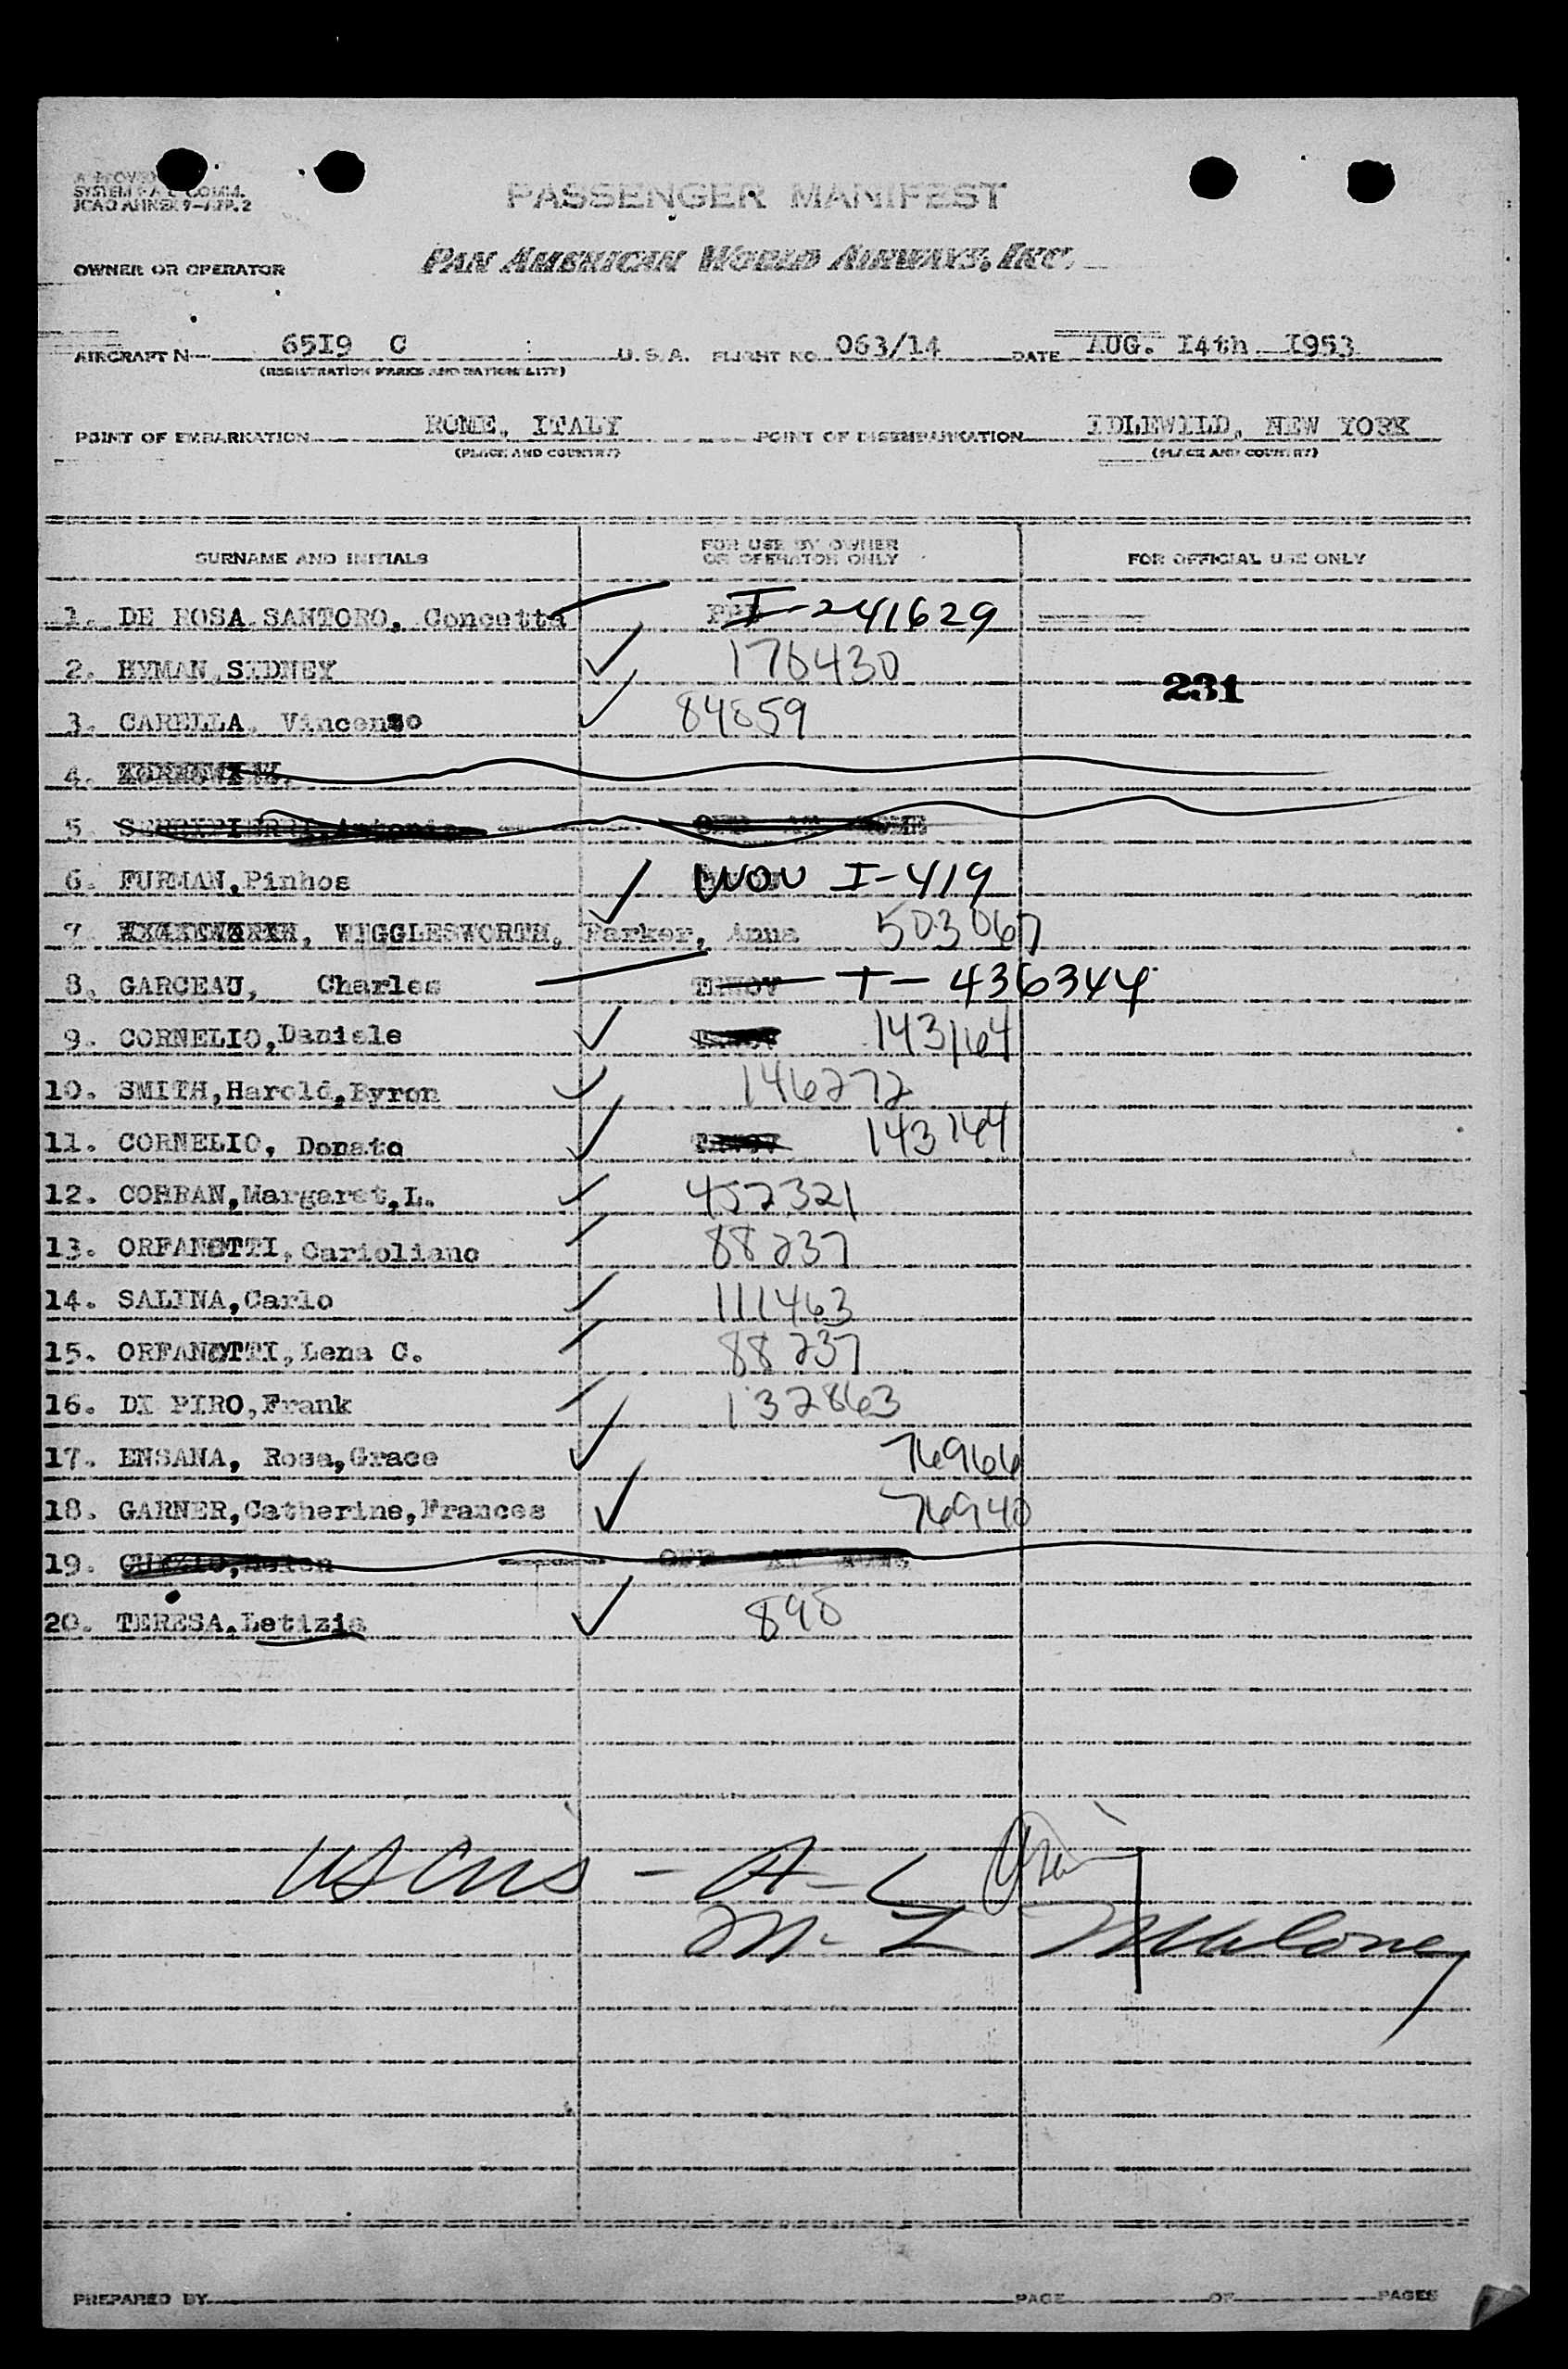 SYSTEM
PASSENGER MANIFEST
OWNER OR OPERATOR PAN AMERICAN WORLD AIRWAYS, INC.
AIRCRAFT N 65I9 C U.S.A. FLIGHT NO. 063/14 DATE AUG. I4th I953
(REGISTRATION MARKS AND NATIONALITY)
POINT OF EMBARKATION ROME, ITALY POINT OF DISEMBARKATION IDLEWILD, NEW YORK
(PLACE AND COUNTRY) (PLACE AND COUNTRY)
SURNAME AND INITIALS FOR USE BY OWNER OR OPERATOR ONLY FOR OFFICIAL USE ONLY
1. DE ROSA SANTORO, Concetta I-241629
2. HYMAN, SIDNEY 176430
231
3. CARELLA, Vincenzo 84859
4.
5. Antonia ROME
6. FURMAN, Pinhos I-419
7. WIGGLESWORTH, Parker, Anna 503067
8. GARCEAU, Charles I-436344
9. CORNELIO, Daniele 143164
10. SMITH, Harold, Byron 146272
11. CORNELIO, Donato 143164
12. CORBAN, Margaret, L. 452321
13. ORFANOTTI, Carioliano 88237
14. SALINA, Carlo 111463
15. ORFANOTTI, Lena C. 88237
16. DI PIRO, Frank 132863
17. ENSANA, Rosa, Grace 76966
18. GARNER, Catherine, Frances 76940
19. OFF AT ROME
20. TERESA, Letizia 898
M-L Maloney
PREPARED BY PAGE OF PAGES